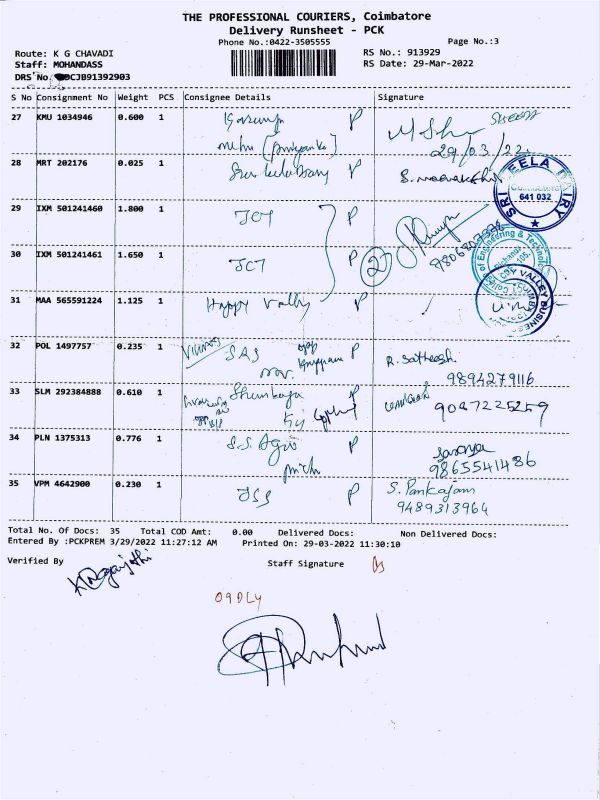 THE PROFESSIONAL COURIERS, Coimbatore
Delivery Runsheet - PCK
Phone No.:0422-3505555
Page No.:3
Route: K G CHAVADI
RS No.: 913929
Staff: MOHANDASS
RS Date: 29-Mar-2022
DRS No: CJB91392903
S No Consignment No Weight PCS Consignee Details Signature
27 KMU 1034946 0.600 1 P
29/03/22
28 MRT 202176 0.025 1 P
SRI SHEELA DAIRY
641 032
29 IXM 501241460 1.800 1 JCT P
30 IXM 501241461 1.650 1 JCT P 2
of Engineering & Technology
31 MAA 565591224 1.125 1 Happy Valley P
VALLEY BUSINESS
32 POL 1497757 0.235 1 SAS P R. Satheesh
9894279116
33 SLM 292384888 0.610 1 P
9047225259
34 PLN 1375313 0.776 1 S.S. Agro P Saranya
9865541486
35 VPM 4642900 0.230 1 JSS P S. Pankajam
9489313964
Total No. Of Docs: 35 Total COD Amt: 0.00 Delivered Docs: Non Delivered Docs:
Entered By :PCKPREM 3/29/2022 11:27:12 AM Printed On: 29-03-2022 11:30:10
Verified By Staff Signature
09DLY